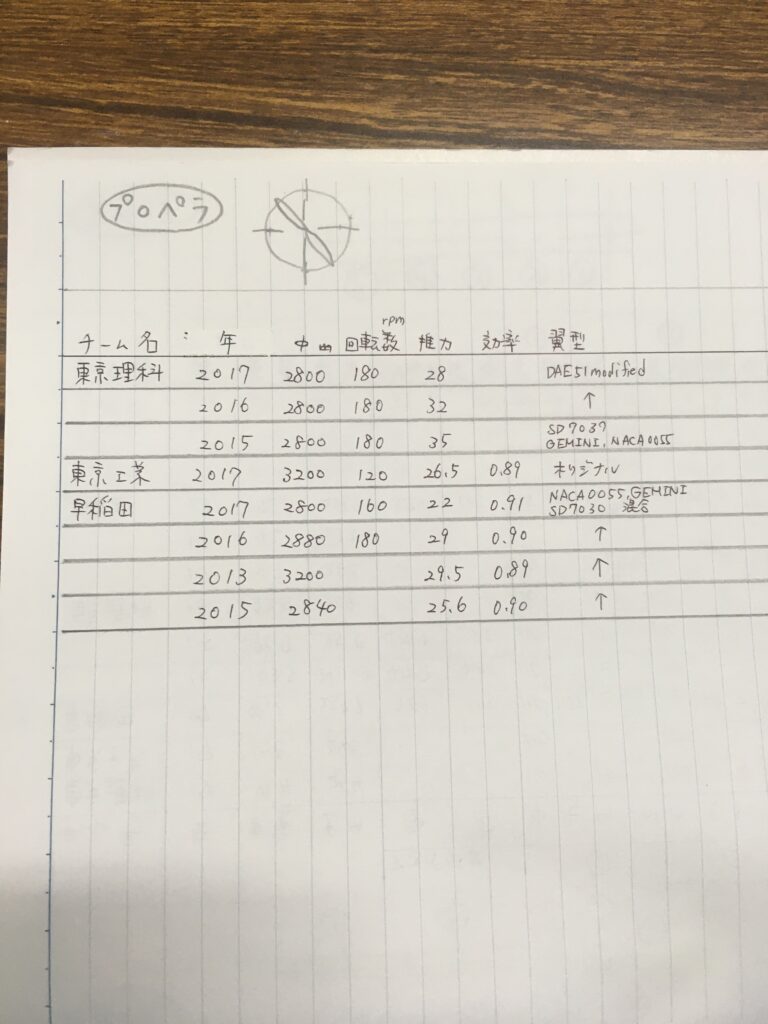 プロペラ
rpm
チーム名 : 年 中 mm 回転数 推力 効率 翼型
東京理科 2017 2800 180 28 DAE51modified
2016 2800 180 32 ↑
2015 2800 180 35 SD7037
GEMINI, NACA0055
東京工業 2017 3200 120 26.5 0.89 オリジナル
早稲田 2017 2800 160 22 0.91 NACA0055, GEMINI
SD7030 混合
2016 2880 180 29 0.90 ↑
2013 3200 29.5 0.89 ↑
2015 2840 25.6 0.90 ↑